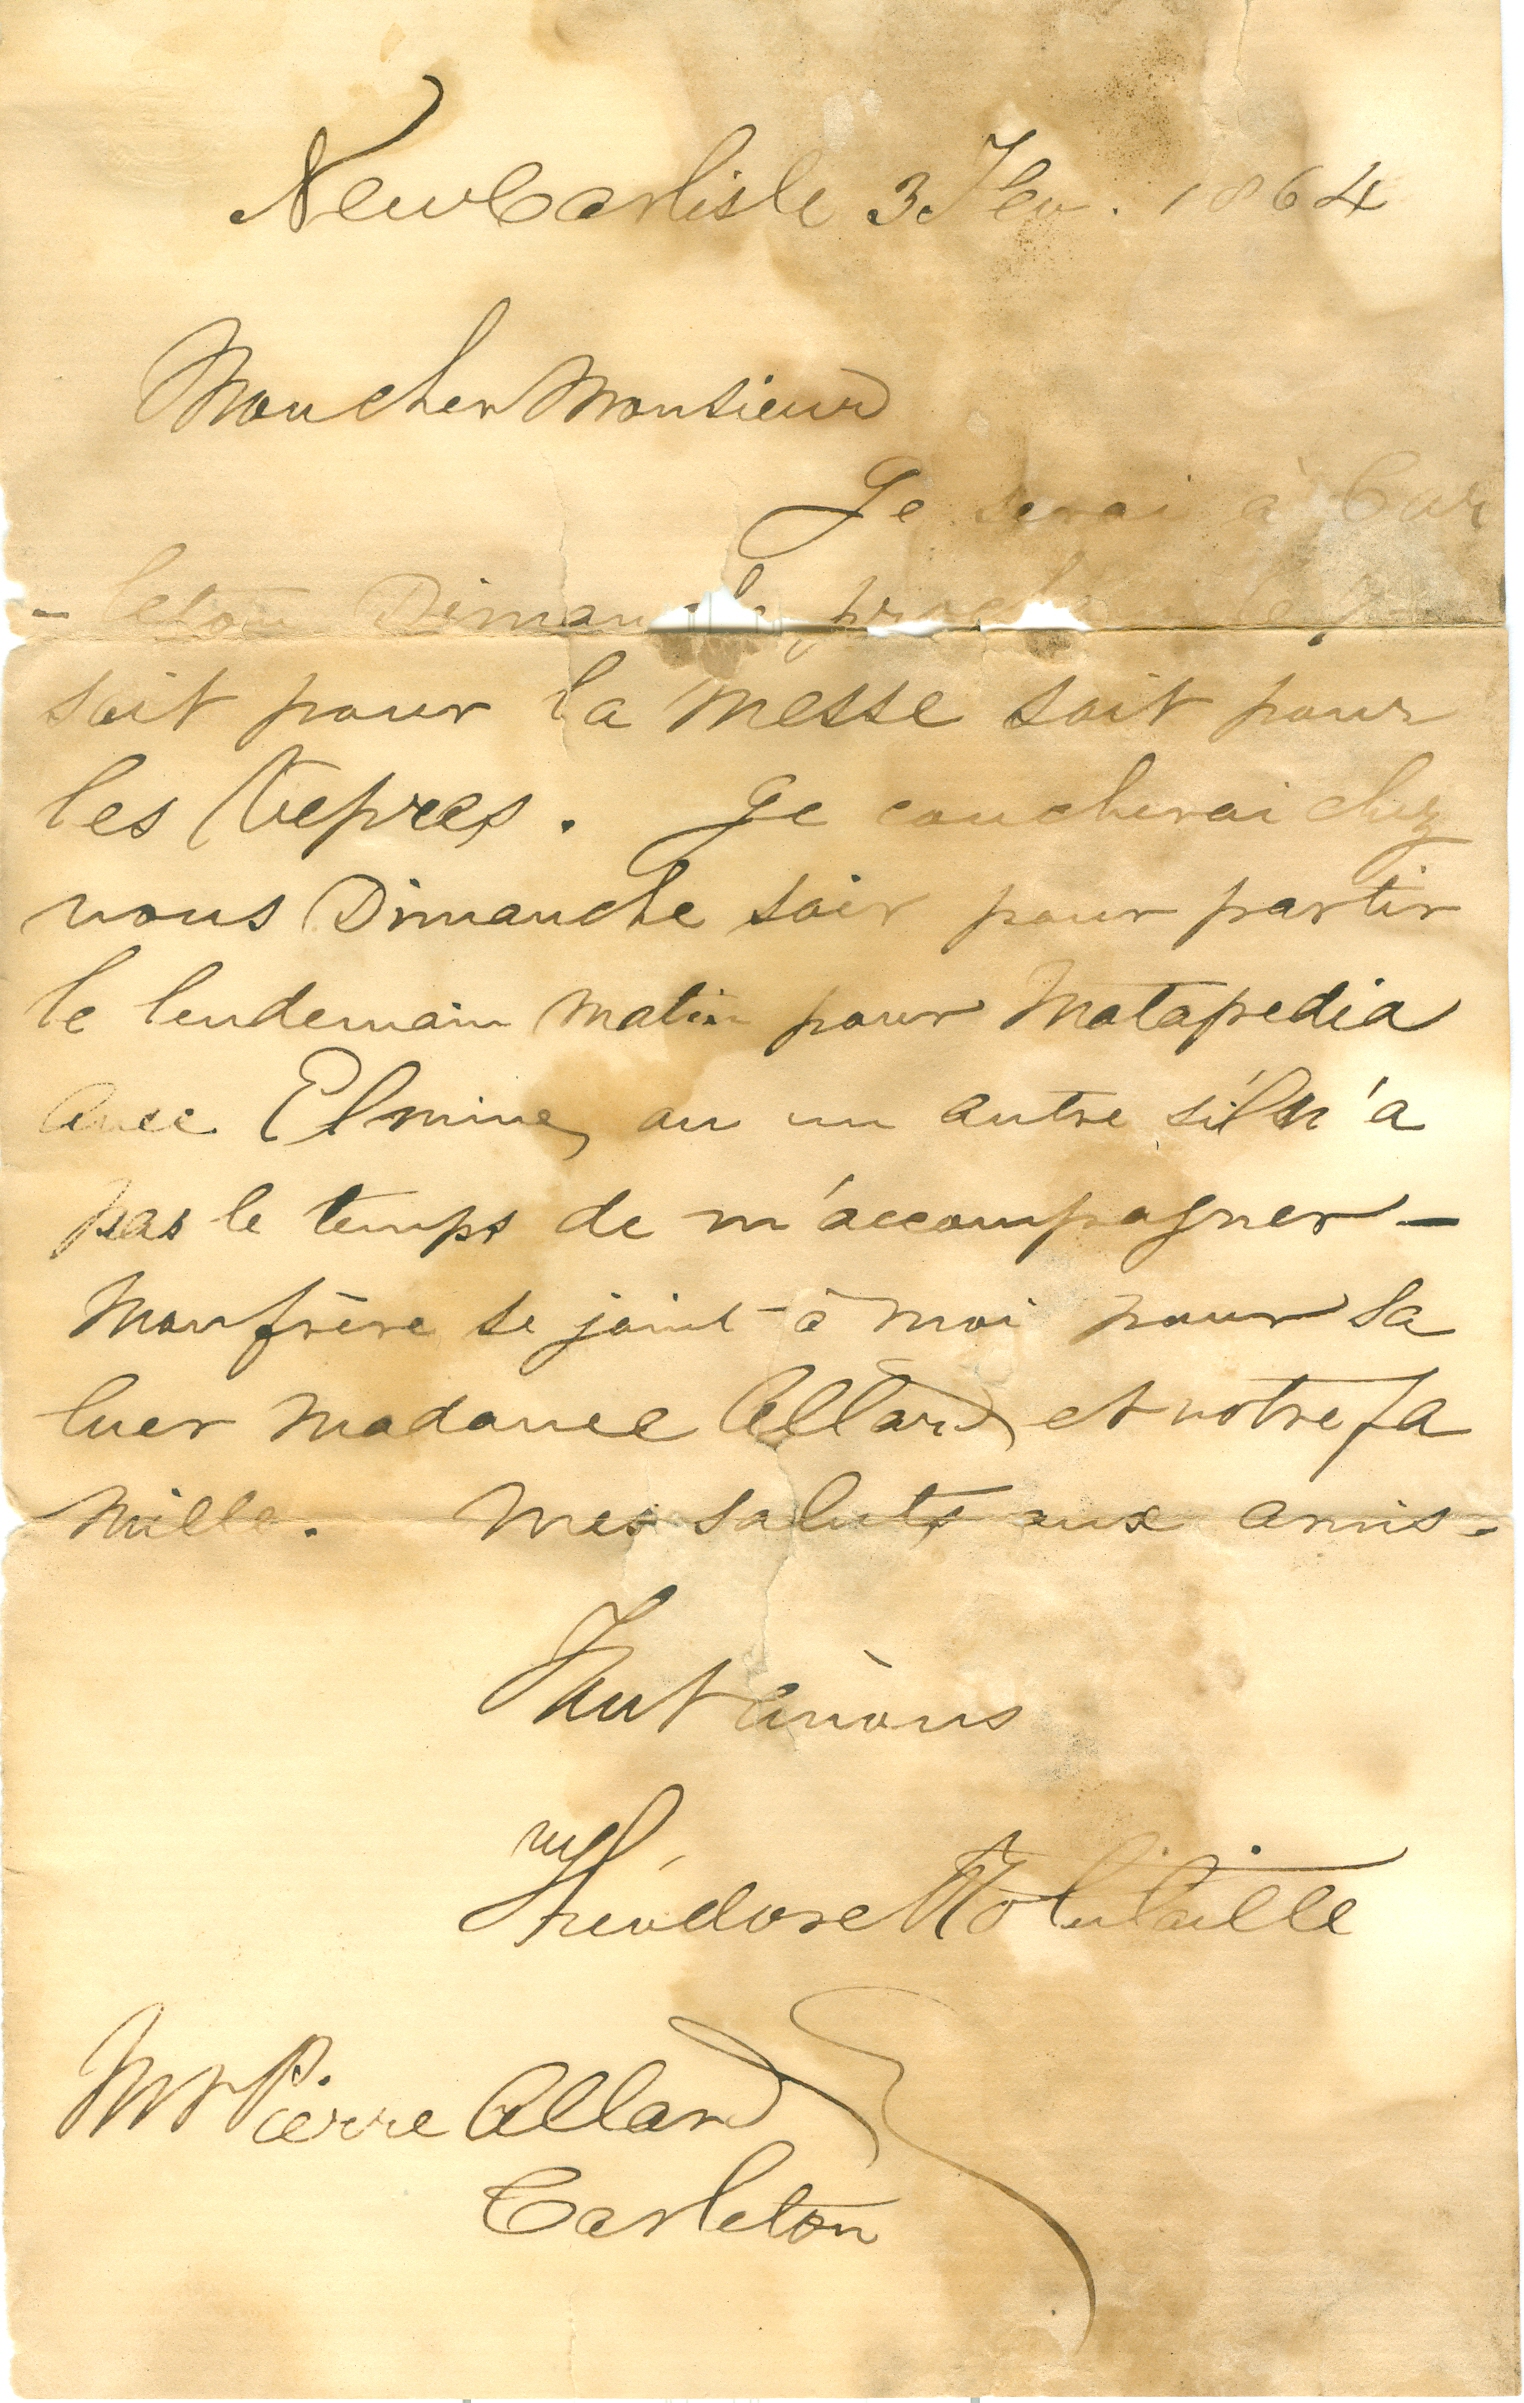 New Carlisle 3 Fev. 1864
Mon cher Monsieur
Je serai à Car
-leton Dimanche prochain le 7
soit pour la Messe soit pour
les Vepres. Je coucherai chez
vous Dimanche soir pour partir
le lendemain matin pour Matapedia
avec Elmine, ou un autre s'il n'a
pas le temps de m'accompagner —
Mon frère se joint à moi pour sa
luer Madame Allard et votre fa
mille. Mes saluts aux amis.
Tout à vous
Théodore Robitaille
Mr Pierre Allard
Carleton